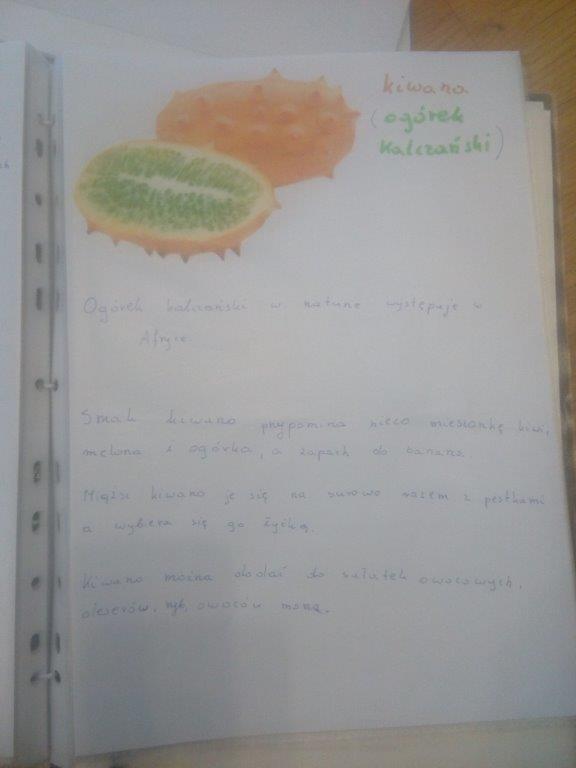 kiwana
(ogórek
Kalczański)
Ogórek kalczański w naturze występuje w
Afryce.
Smak kiwano przypomina nieco mieszankę kiwi,
melona i ogórka, a zapach do banana.
Miąższ kiwano je się na surowo razem z pestkami
a wybiera się go łyżką.
Kiwano można dodać do sałatek owocowych,
deserów, ryb, owoców morza.